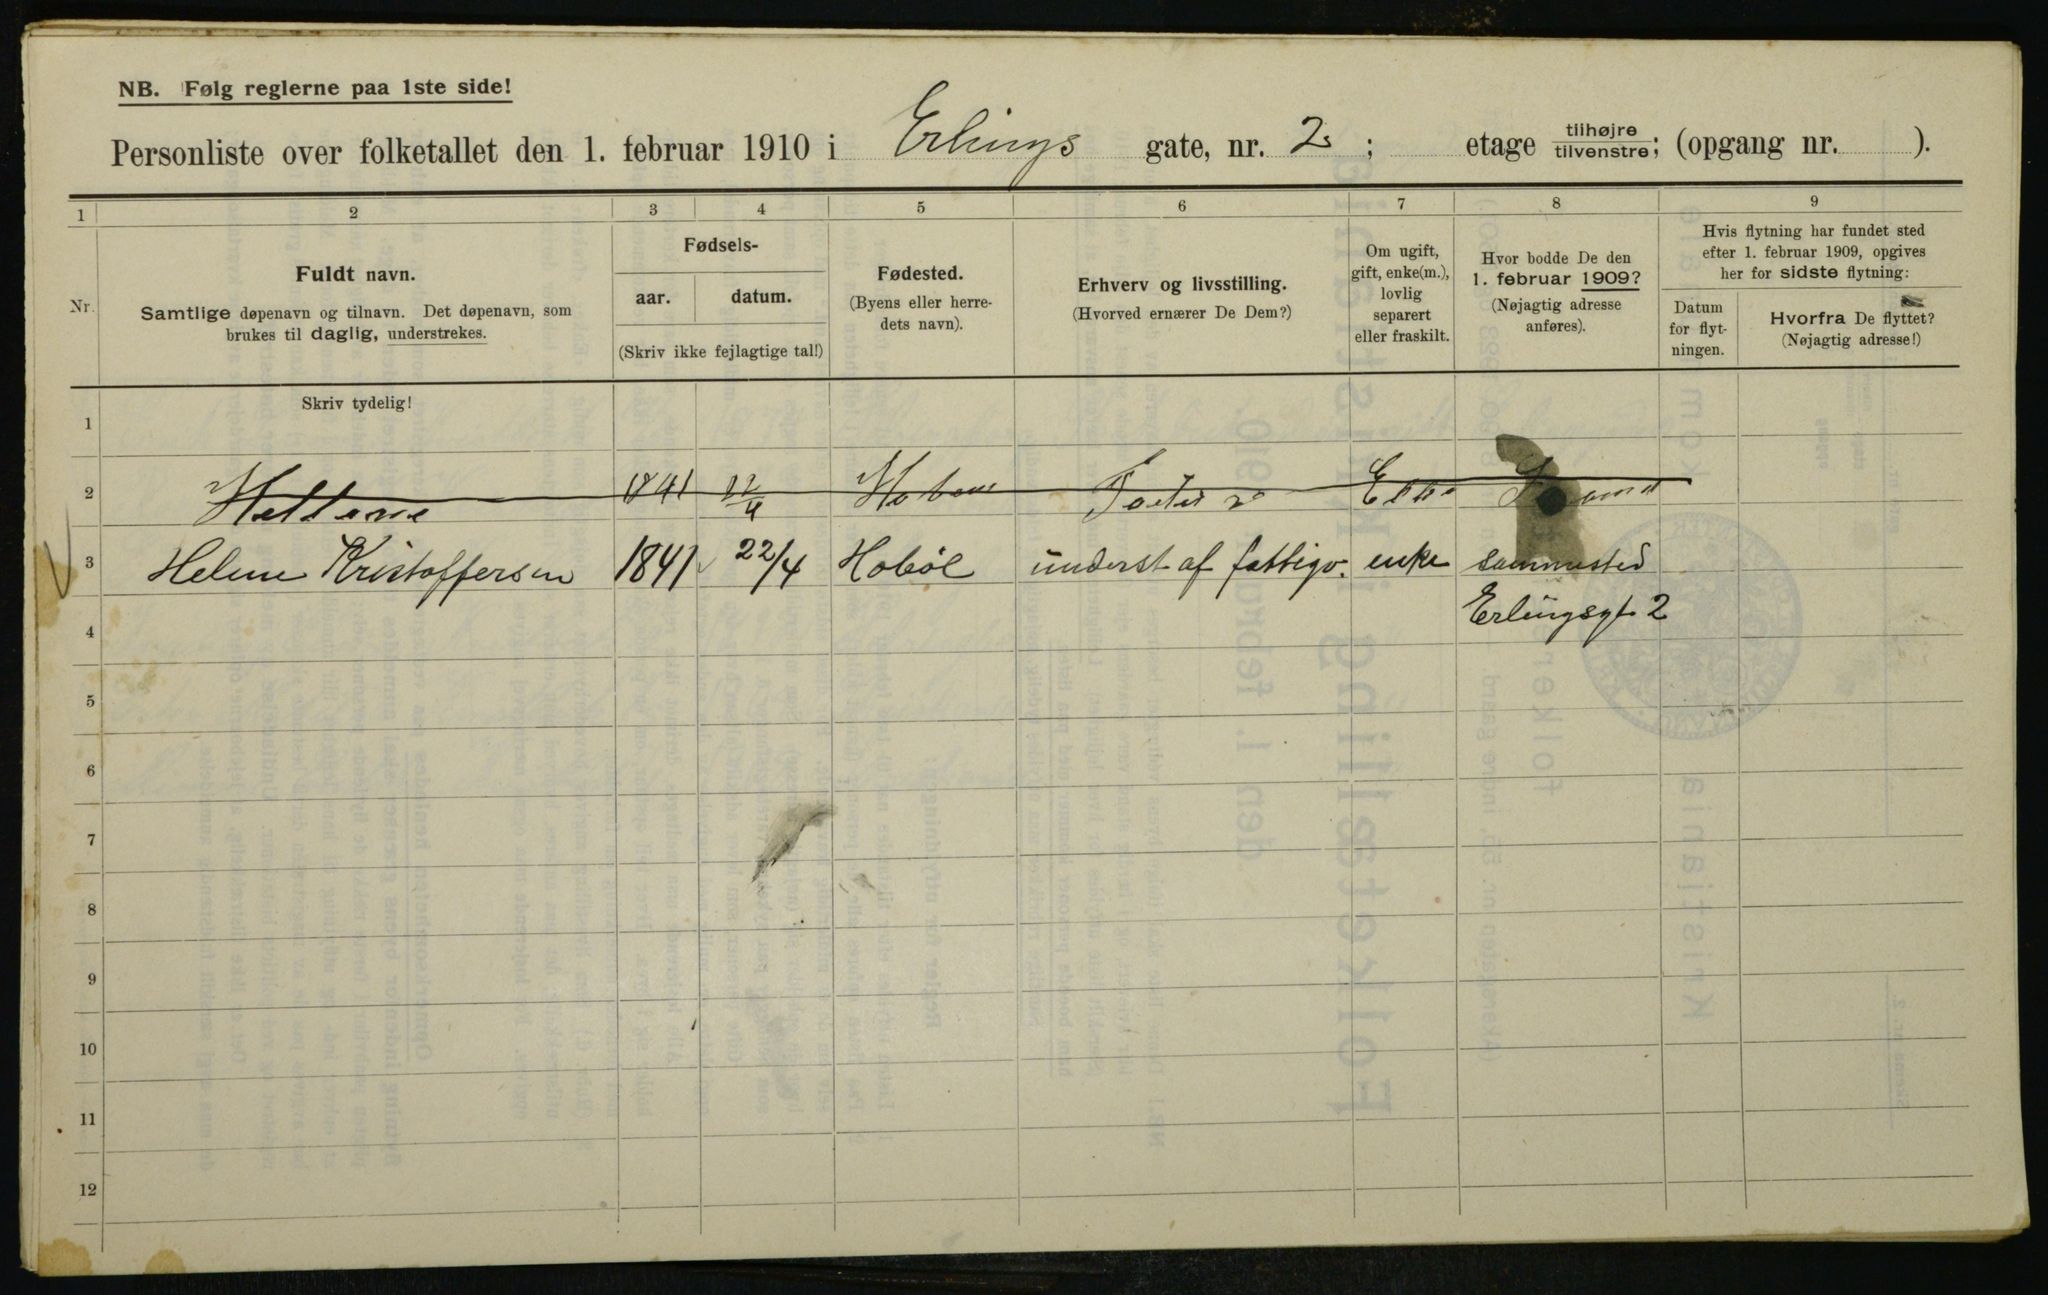 NB. Følg reglerne paa 1ste side!
Personliste over folketallet den 1. februar 1910 i Erlings gate, nr. 2; etage tilhøjre tilvenstre; (opgang nr. ).
1 2 3 4 5 6 7 8 9
Nr.
Fuldt navn.
Samtlige døpenavn og tilnavn. Det døpenavn, som
brukes til daglig, understrekes.
Fødsels-
aar. datum.
(Skriv ikke fejlagtige tal!)
Fødested.
(Byens eller herre-
dets navn).
Erhverv og livsstilling.
(Hvorved ernærer De Dem?)
Om ugift,
gift, enke(m.),
lovlig
separert
eller fraskilt.
Hvor bodde De den
1. februar 1909?
(Nøjagtig adresse
anføres).
Hvis flytning har fundet sted
efter 1. februar 1909, opgives
her for sidste flytning:
Datum
for flyt-
ningen.
Hvorfra De flyttet?
(Nøjagtig adresse!)
Skriv tydelig!
1
2 1841
3 Helene Kristoffersen 1841 22/4 Hobøl underst af fattigv. enke sammested
4 Erlingsgt 2
5
6
7
8
9
10
11
12